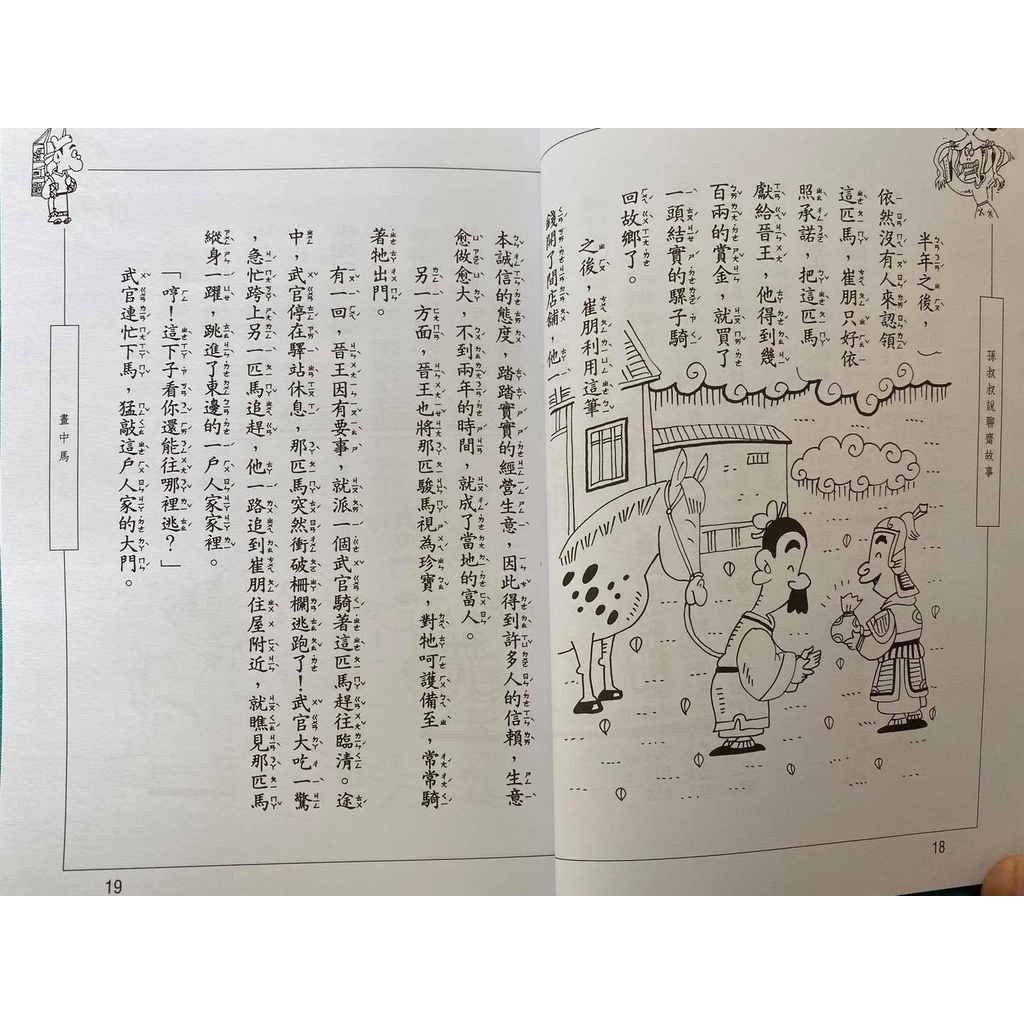 孫叔叔說聊齋故事
半年之後，
依然沒有人來認領
這匹馬，崔朋只好依
照承諾，把這匹馬
獻給晉王，他得到幾
百兩的賞金，就買了
一頭結實的騾子騎
回故鄉了。
之後，崔朋利用這筆
錢開了間店鋪，他一
18
本誠信的態度，踏踏實實的經營生意，因此得到許多人的信賴，生意
愈做愈大，不到兩年的時間，就成了當地的富人。
另一方面，晉王也將那匹駿馬視為珍寶，對牠呵護備至，常常騎
著牠出門。
有一回，晉王因有要事，就派一個武官騎著這匹馬趕往臨清。途
中，武官停在驛站休息，那匹馬突然衝破柵欄逃跑了！武官大吃一驚
，急忙跨上另一匹馬追趕，他一路追到崔朋住屋附近，就瞧見那匹馬
縱身一躍，跳進了東邊的一戶人家家裡。
「哼！這下子看你還能往哪裡逃？」
武官連忙下馬，猛敲這戶人家的大門。
畫中馬
19